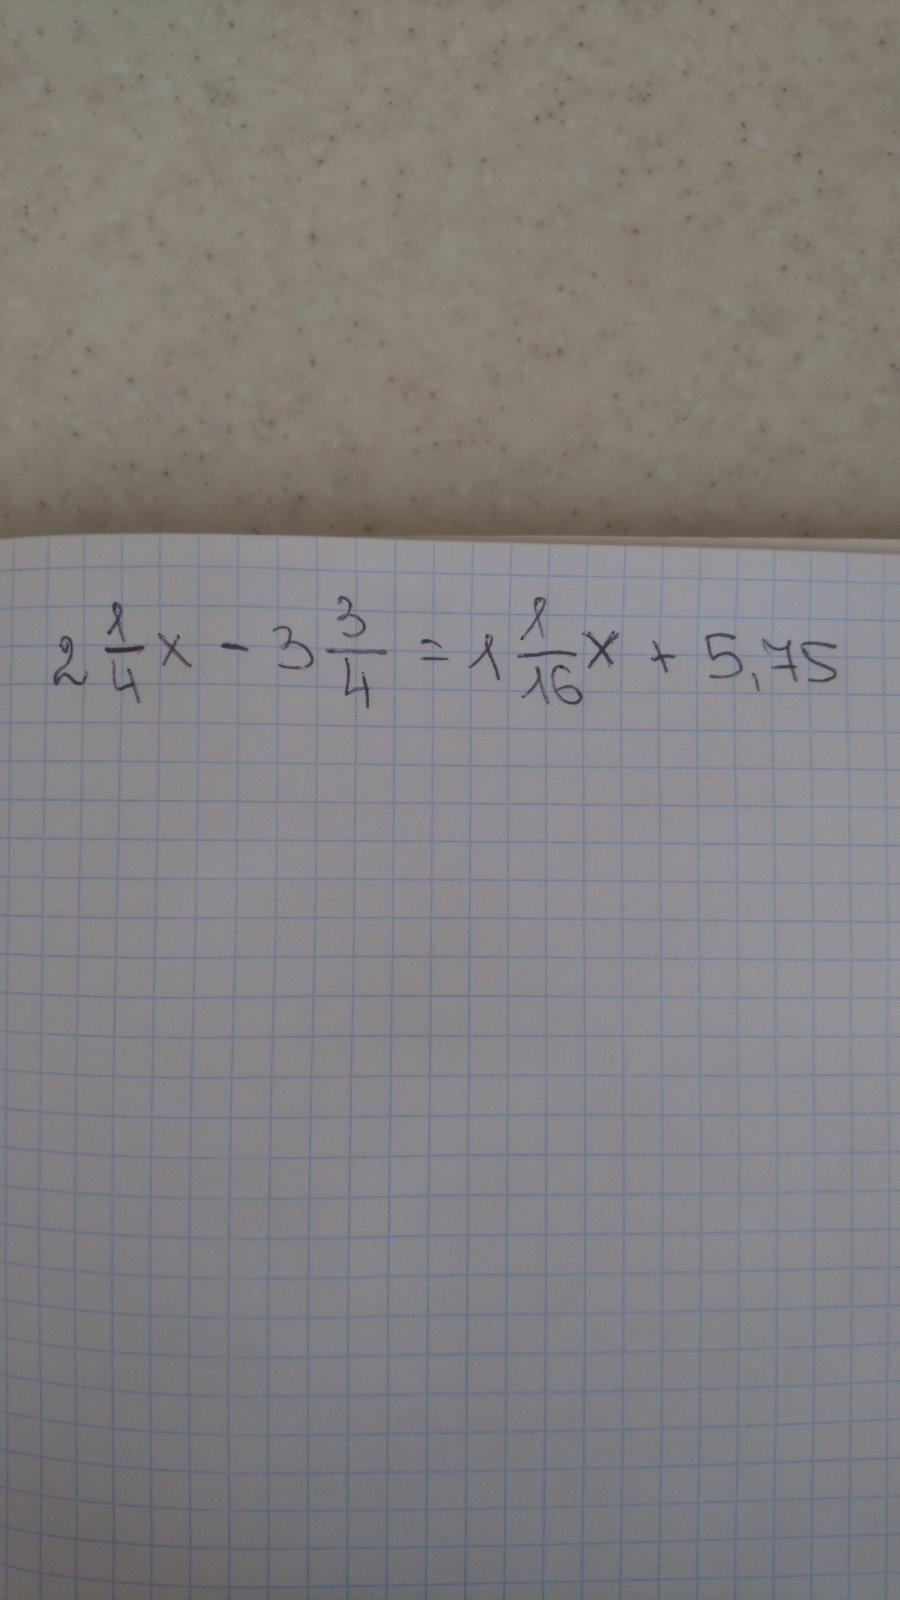 2 1/4 x - 3 3/4 = 1 1/16 x + 5,75